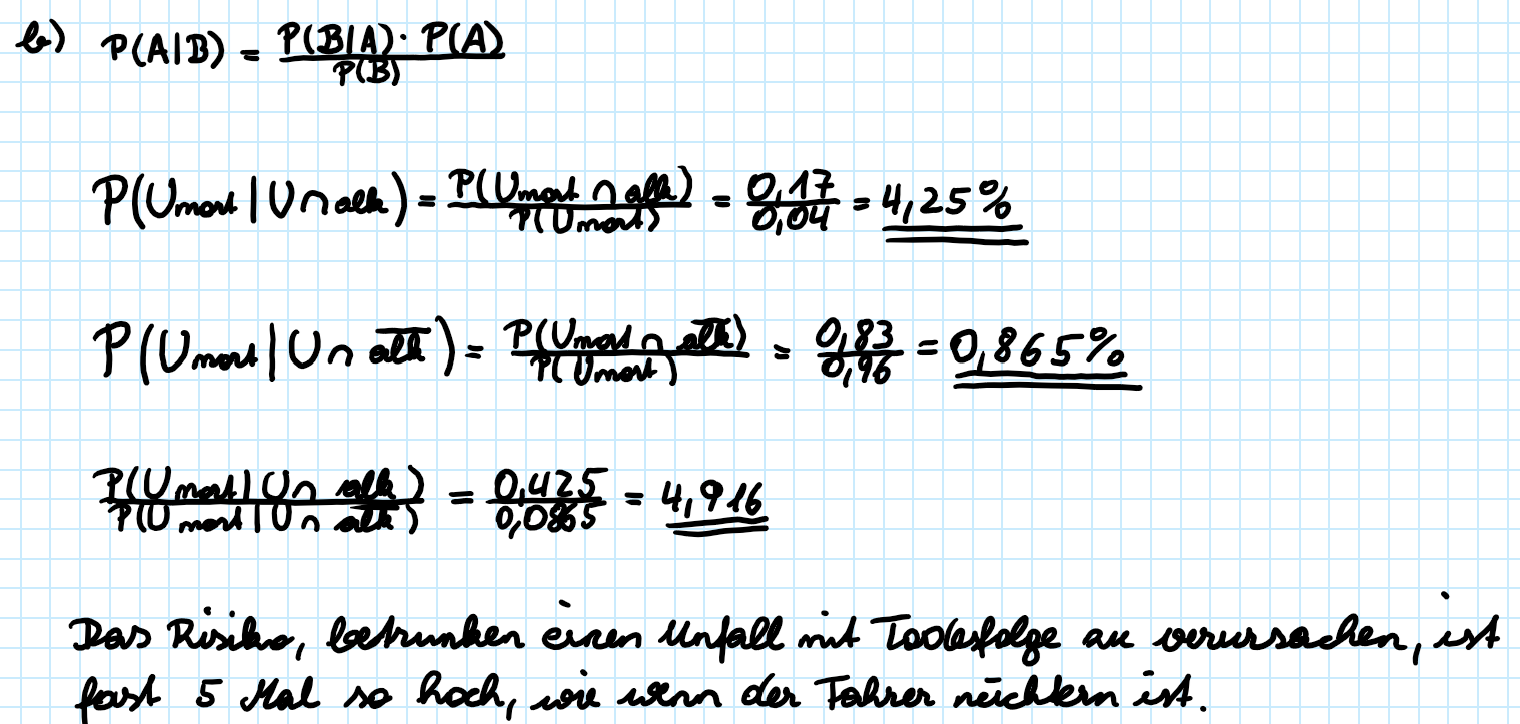 b) P(A|B) = P(B|A) · P(A) / P(B)
P(U_mort | U ∩ alk) = P(U_mort ∩ alk) / P(U_mort) = 0,17 / 0,04 = 4,25%
P(U_mort | U ∩ a̅l̅k̅) = P(U_mort ∩ a̅l̅k̅) / P(U_mort) = 0,83 / 0,96 = 0,865%
P(U_mort | U ∩ alk) / P(U_mort | U ∩ a̅l̅k̅) = 0,425 / 0,0865 = 4,916
Das Risiko, betrunken einen Unfall mit Todesfolge zu verursachen, ist
fast 5 Mal so hoch, wie wenn der Fahrer nüchtern ist.